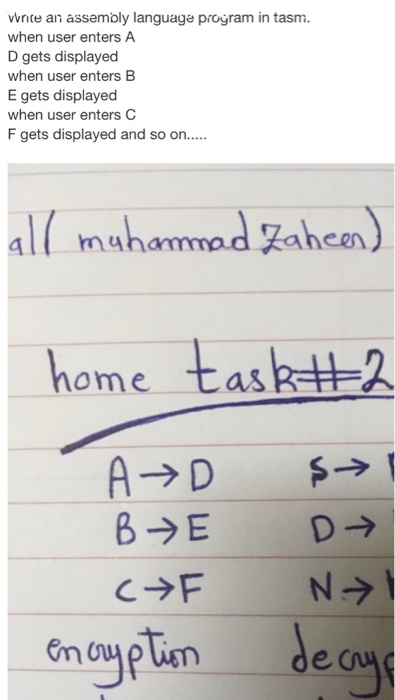 Write an assembly language program in tasm.
when user enters A
D gets displayed
when user enters B
E gets displayed
when user enters C
F gets displayed and so on.....
all( muhammad Zaheen)
home task#2
A→D S→
B→E D→
C→F N→
encryption decryp